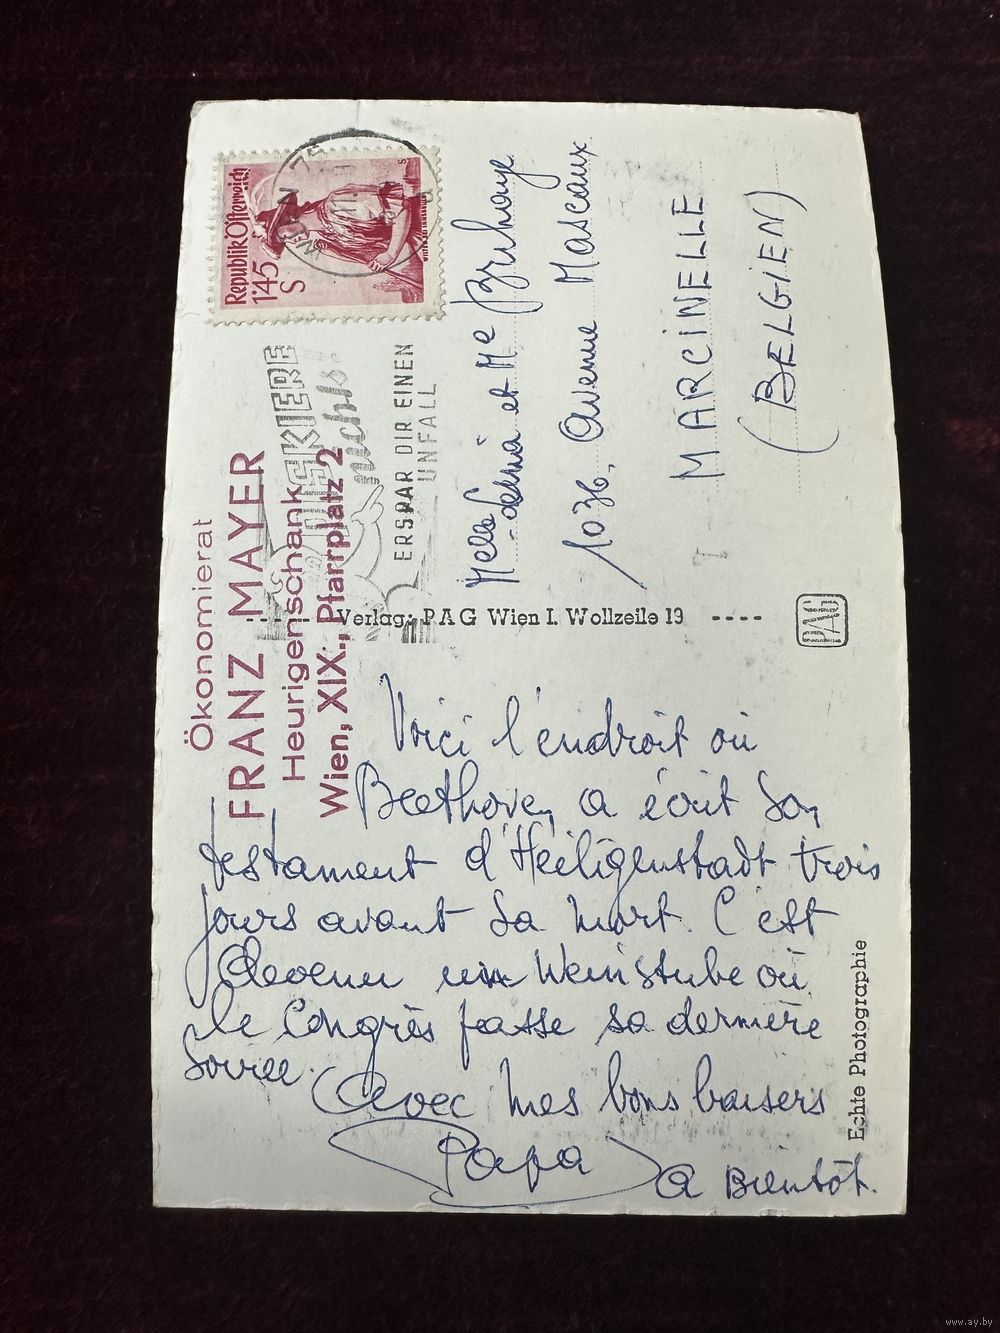 Republik Österreich
1'45
S
WIEN
Ökonomierat
FRANZ MAYER
Heurigenschank
Wien, XIX., Pfarrplatz 2
RISKIERE
nichts
ERSPAR DIR EINEN
UNFALL
Melle et Me Bruhaye
103b, Avenue Mascaux
MARCINELLE
(BELGIEN)
Verlag: PAG Wien I. Wollzeile 19
PAG
Voici l'endroit où
Beethoven a écrit son
testament d'Heiligenstadt trois
jours avant sa mort. C'est
devenu une Weinstube où
le Congrès passe sa dernière
soirée.
Avec mes bons baisers
Papa
à Bientôt.
Echte Photographie
www.ay.by